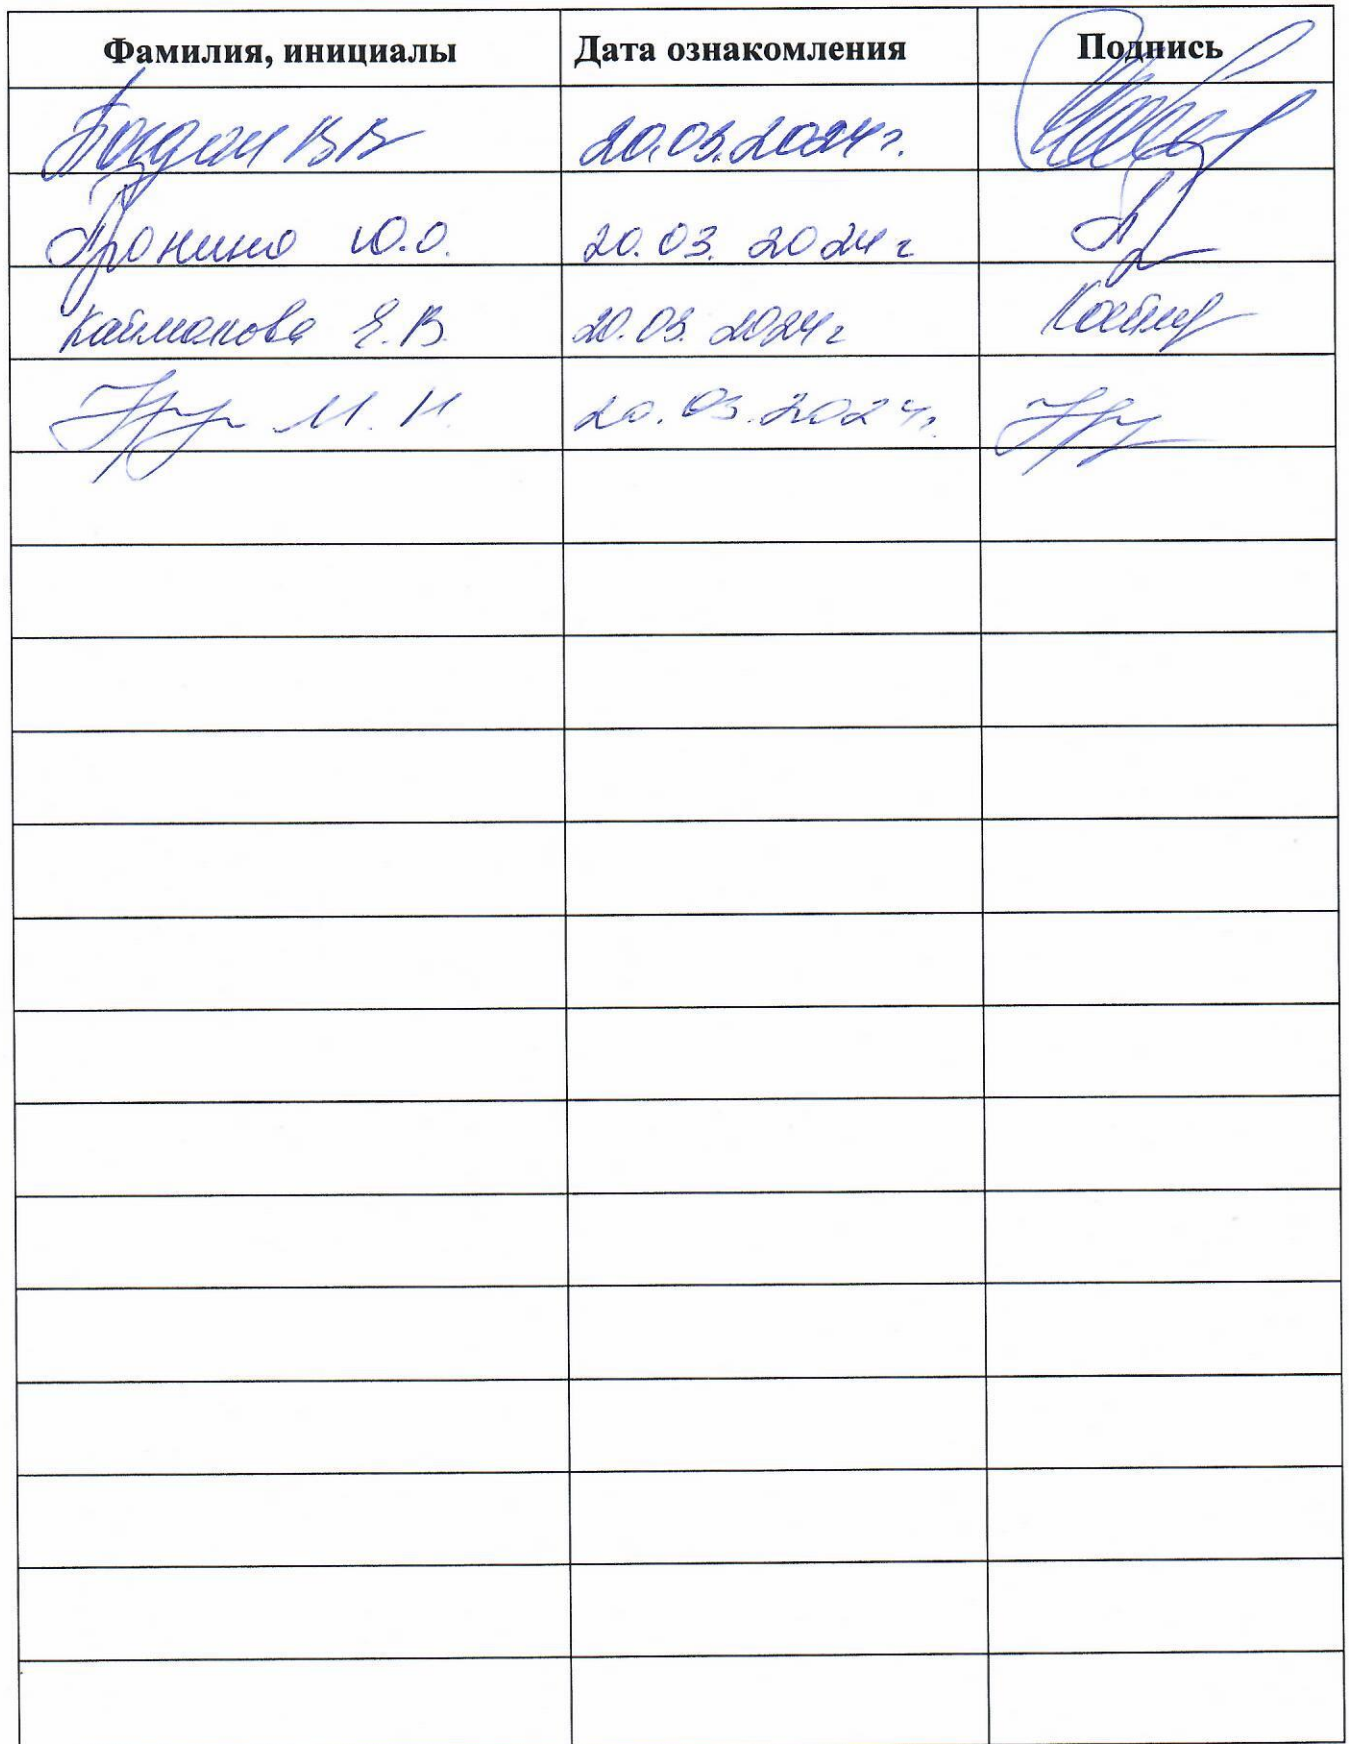 Фамилия, инициалы Дата ознакомления Подпись
Богдан В В 20.03.2024 г.
Пронина Ю.О. 20.03.2024 г
Кайманова Е.В. 20.03.2024 г
М. Н. 20.03.2024 г.